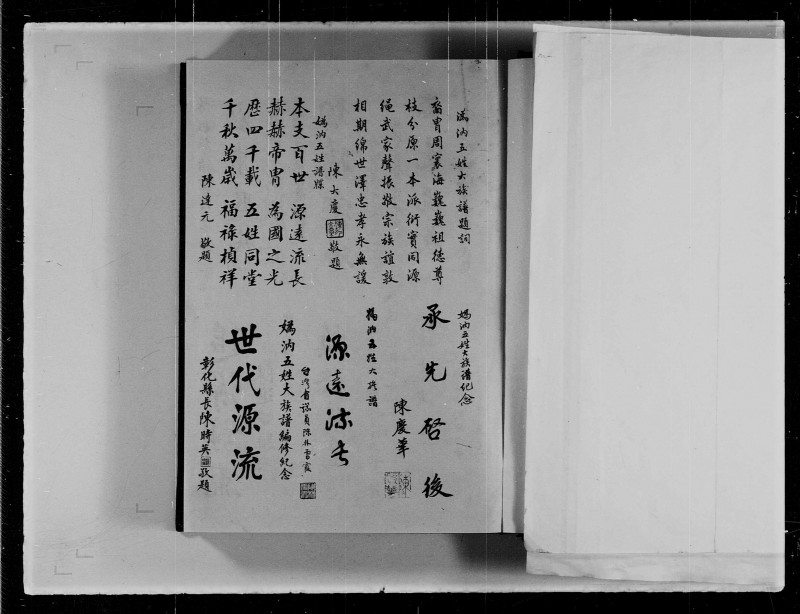 媯汭五姓大族譜題詞
裔冑周寰海巍巍祖德尊
枝分原一本派衍實同源
繩武家聲振敬宗族誼敦
相期綿世澤忠孝永無諼
陳大慶
敬題
媯汭五姓譜牒
本支百世 源遠流長
赫赫帝冑 為國之光
歷四千載 五姓同堂
千秋萬歲 福祿楨祥
陳達元 敬題
媯汭五姓大族譜紀念
承先啓後
陳慶華
媯汭五姓大族譜
源遠流長
台灣省議員陳林雪霞
媯汭五姓大族譜編修紀念
世代源流
彰化縣長陳時英
敬題